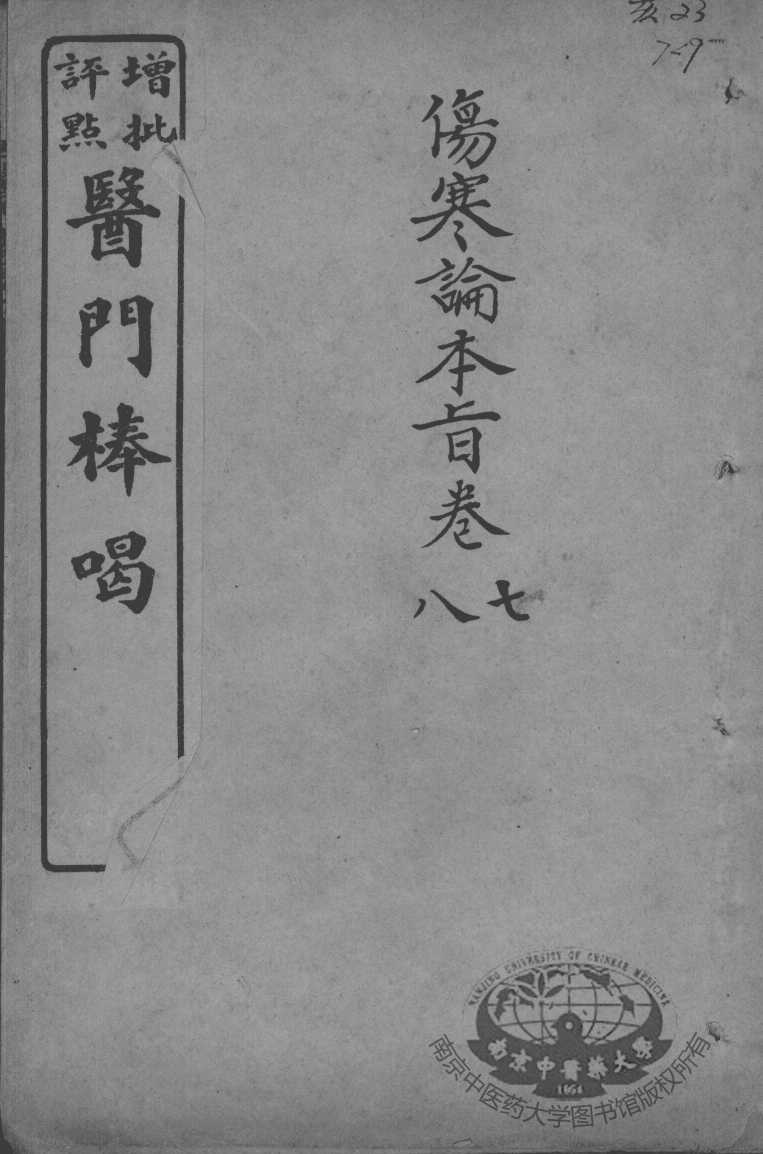 亥23
7-9
傷寒論本旨卷
七
八
增批
評點
醫門棒喝
NANJING UNIVERSITY OF CHINESE MEDICINE
南京中醫藥大學
1954
南京中医药大学图书馆版权所有